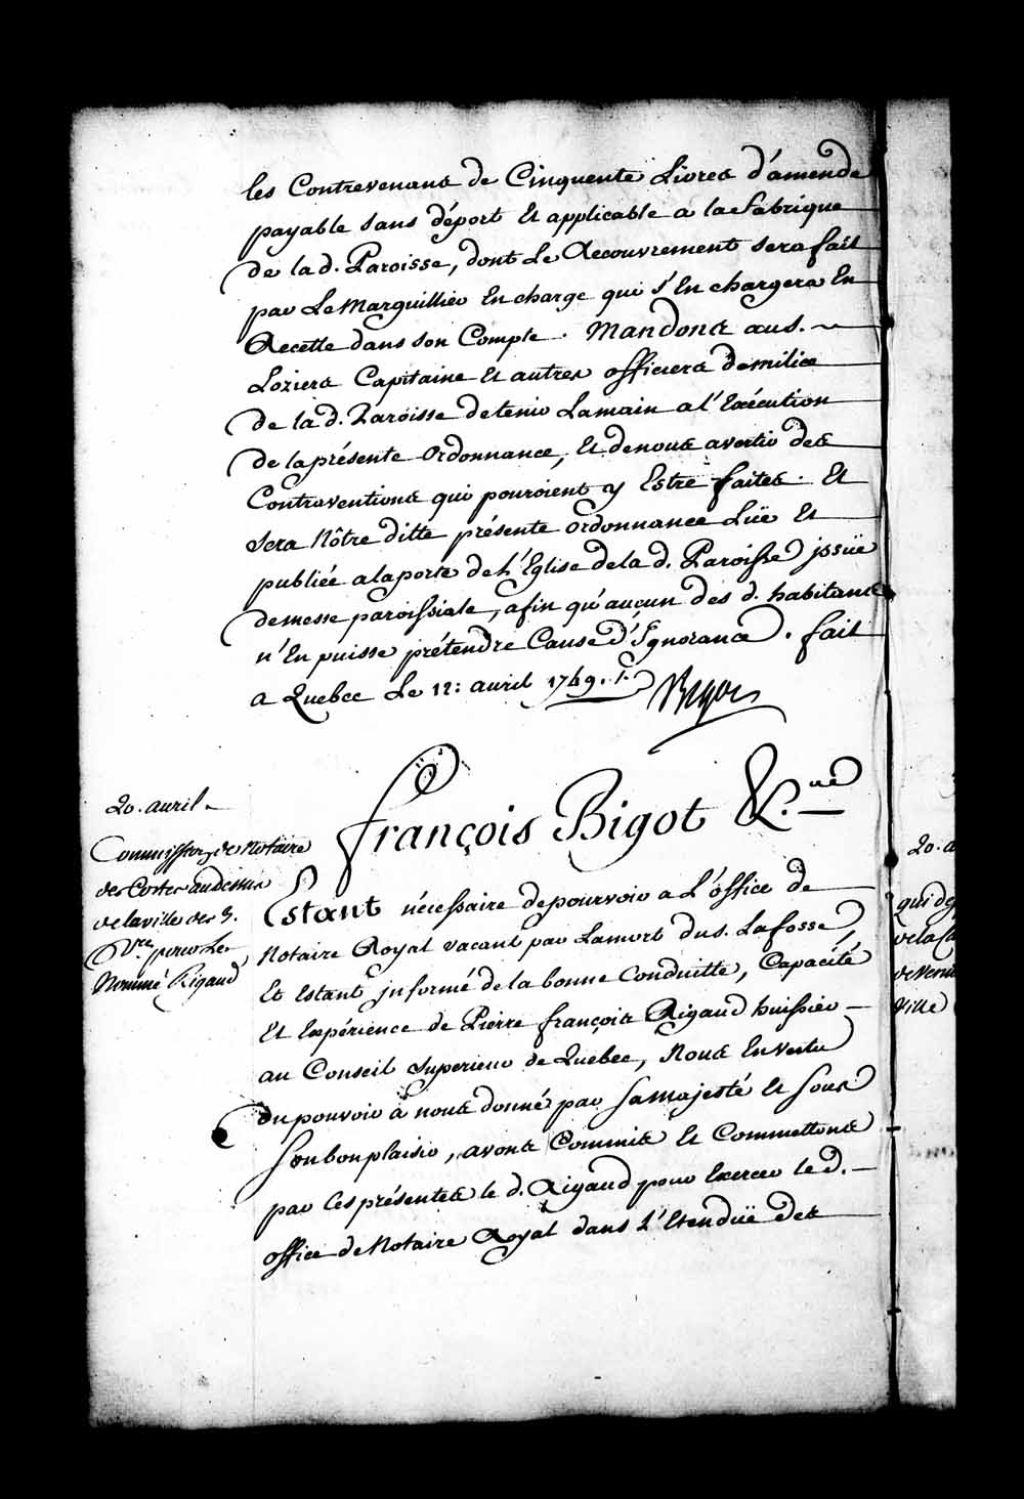 les Contrevenans de Cinquente Livres d'amende
payable sans déport Et applicable a la fabrique
de la d. Paroisse, dont Le Recouvrement sera fait
par Le Marguillier En charge qui s'En chargera En
Recette dans son Compte. Mandons au s.
Loziers Capitaine Et autres officiers de milice
de la d. Paroisse de tenir La main a l'Exécution
de la présente Ordonnance, Et de nous avertir des
Contraventions qui pouroient y Estre faites. Et
sera Nôtre ditte présente ordonnance Luë Et
publiée a la porte de L'Eglise de la d. Paroisse jssüe
de messe paroissiale, afin qu'aucun des d. habitans
n'En puisse prétendre Cause d'Ignorance. fait
a Quebec Le 12: avril 1749.
Bigot
françois Bigot &c.
20. avril
Commission de Notaire
des Costes au dessus
de la ville des 3.
Rvres pour Le
Nommé Rigaud
Estant nécessaire de pourvoir a L'office de
Notaire Royal vacant par La mort du s. Lafosse,
Et Estant jnformé de la bonne Conduitte, Capacité
Et Expérience de Pierre françois Rigaud huissier
au Conseil Superieur de Quebec, Nous En vertu
du pouvoir à nous donné par Sa majesté Et sous
son bon plaisir, avons Commis Et Commettons
par Ces présentes le d. Rigaud pour Exercer le d.
office de Notaire Royal dans L'Etenduë des
20. a
qui de
de la
ville